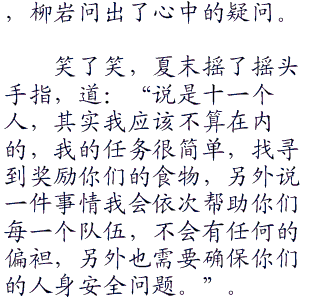 ，柳岩问出了心中的疑问。
笑了笑，夏末摇了摇头
手指，道：“说是十一个
人，其实我应该不算在内
的，我的任务很简单，找寻
到奖励你们的食物，另外说
一件事情我会依次帮助你们
每一个队伍，不会有任何的
偏袒，另外也需要确保你们
的人身安全问题。”。